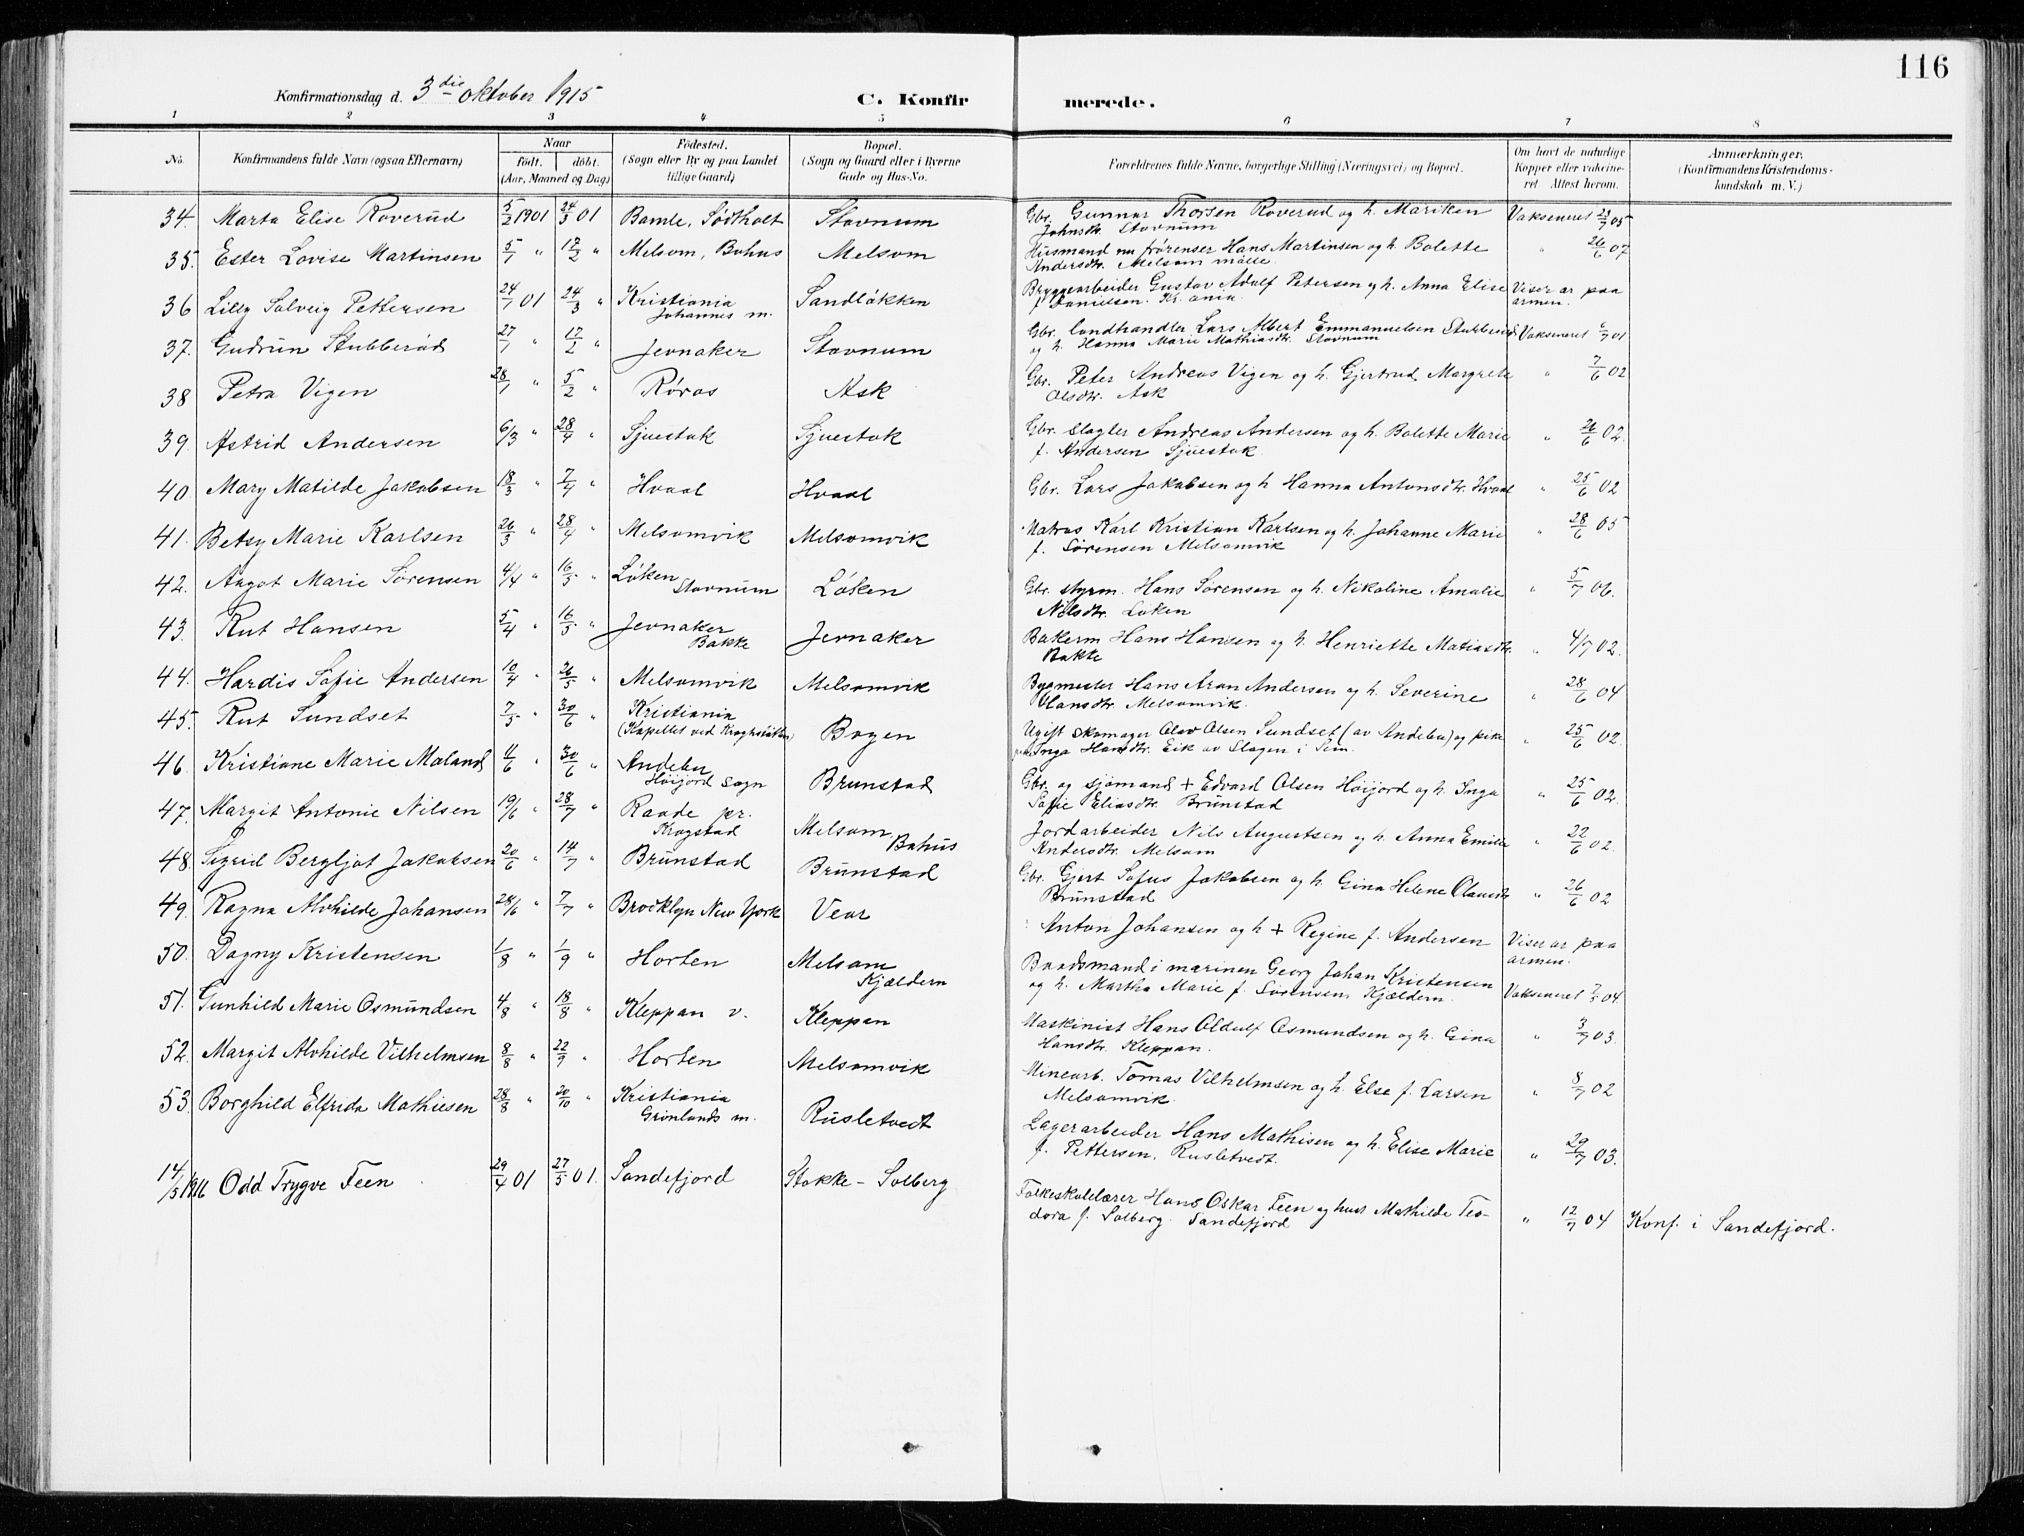 116
Konfirmationsdag d. 3die oktober 1915
C. Konfirmerede.
1 2 3 4 5 6 7 8
No. Konfirmandens fulde Navn (ogsaa Efternavn) Naar födt. döbt. (Aar, Maaned og Dag) Födested. (Sogn eller By og paa Landet tillige Gaard) Bopæl. (Sogn og Gaard eller i Byerne Gade og Hus-No. Forældrenes fulde Navne, borgerlige Stilling (Næringsvei) og Bopæl. Om havt de naturlige Kopper eller vakcineret Attest herom. Anmærkninger. (Konfirmandens Kristendomskundskab m. V.)
34. Marta Elise Roverud 5/2 1901 24/3 01 Bamle, Södtholt Stavnum Gbr. Gunnar Thorsen Roverud og h. Mariken Vakseneret 23/9 05
Johnsdtr. Stavnum
35. Ester Lovise Martinsen 5/1 " 17/2 " Melsom, Bahus Melsom Husmand nu forenser Hans Martinsen og h. Bolette " 26/6 07
Andersdtr. Melsom mølle.
36 Lilly Solveig Pettersen 24/1 01 24/3 " Kristiania Sandløkken Bryggearbeider Gustav Adolf Petersen og h. Anna Elise Viser ar paa
Johannes m. f. Danielsen. Kr.ania. armen.
37. Gudrun Stubberød 27/1 " 17/2 " Jevnaker Stavnum Gbr. landhandler Lars Albert Emmanuelsen Stubberød Vakseneret 6/7 01
og h. Hanna Marie Mathiasdtr. Stavnum
38 Petra Vigen 28/1 " 5/2 " Røros Ask Gbr. Peter Andreas Vigen og h. Gjertrud Margrete " 7/6 02
Olsdtr. Ask
39. Astrid Andersen 6/3 " 28/4 " Sjuestok Sjuestok Gbr. slagter Andreas Andersen og h. Bolette Marie " 26/6 02.
f. Andersen Sjuestok.
40 Mary Matilde Jakobsen 18/3 " 7/4 " Hvaal Hvaal Gbr. Lars Jakobsen og h Hanna Antonsdtr. Hvaal " 25/6 02
41. Betsy Marie Karlsen 26/3 " 28/4 " Melsomvik Melsomvik Matros Karl Kristian Karlsen og h. Johanne Marie " 28/6 05
f. Sørensen Melsomvik
42. Aagot Marie Sørensen 4/4 " 16/5 " Løken Løken Gbr. styrm. Hans Sørensen og h. Nikoline Amalie " 5/7 06.
Stavnum Nilsdtr. Løken
43. Rut Hansen 5/4 " 16/5 " Jevnaker Jevnaker Bakerm Hans Hansen og h. Henriette Matiasdtr. " 4/7 02.
Bakke Bakke
44. Hardis Sofie Andersen 10/4 " 26/5 " Melsomvik Melsomvik Bygmester Hans Aron Andersen og h. Severine " 28/6 04
Hansdtr. Melsomvik.
45. Rut Sundset 7/5 " 30/6 " Kristiania Bogen Ugift skomager Olav Olsen Sundset (av Andebu) og pike " 25/6 02.
(Kapellet ved Kroghstötten) Inga Hansdtr. Eik av Slagen i Sem.
46. Kristiane Marie Moland 4/6 " 30/6 " Andebu Brunstad Gbr. og sjömand + Edvard Olsen Höijord og h. Inga " 25/6 02.
Höijord sogn Sofie Eliasdtr. Brunstad
47. Margit Antonie Nilsen 19/6 " 28/7 " Raade pr. Melsom Jordarbeider Nils Augustsen og h. Anna Emilie " 22/6 02.
Krogstad Bahus Andersdtr. Melsom
48. Sigrid Bergljot Jakobsen 20/6 " 14/7 " Brunstad Brunstad Gbr. Gjert Sofus Jakobsen og h. Gina Helene Olausdtr. " 26/6 02
Brunstad
49. Ragna Alvhilde Johansen 28/6 " 7/7 " Brooklyn New York Vear Anton Johansen og h + Regine f. Andersen Viser ar paa
armen.
50. Dagny Kristensen 1/8 " 1/9 " Horten Melsom Baadsmand i marinen Georg Johan Kristensen
Kjældern og h. Martha Marie f. Sørensen, Kjældern. Vakseneret 7/5 04.
51. Gunhild Marie Osmundsen 4/8 " 18/8 " Kleppan v. Kleppan Maskinist Hans Oldulf Osmundsen og h. Gina " 3/7 03.
Hansdtr. Kleppan.
52. Margit Alvhilde Vilhelmsen 8/8 " 22/9 " Horten Melsomvik Minearb. Tomas Vilhelmsen og h. Else f. Larsen " 8/7 02
Melsomvik.
53. Borghild Elfrida Mathiesen 28/8 " 20/10 " Kristiania Rusletvedt Lagerarbeider Hans Mathisen og h. Elise Marie " 29/7 03.
Grønlands m. f. Pettersen, Rusletvedt.
14/5 1916 Odd Trygve Feen 29/4 01 27/5 01. Sandefjord Stokke - Solberg Folkeskolelærer Hans Oskar Feen og hust Mathilde Teo- " 12/7 04 Konf. i Sandefjord.
dora f. Solberg. Sandefjord